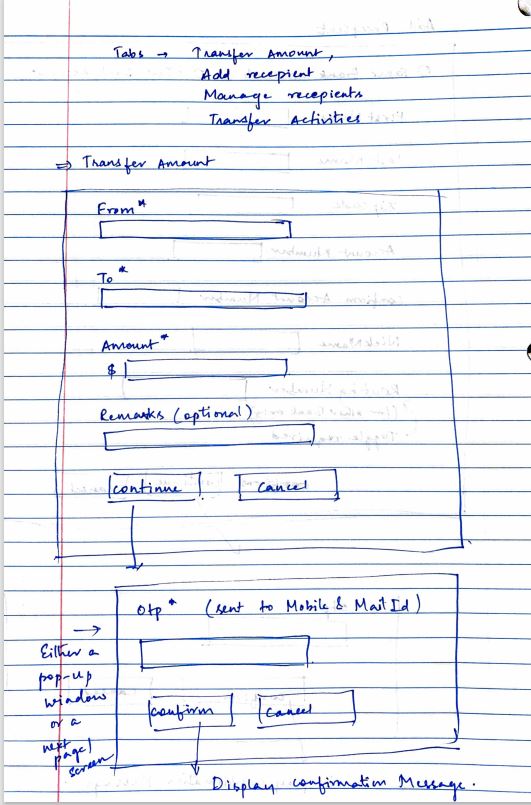 Tabs → Transfer Amount,
Add recepient
Manage recepients
Transfer Activities
⇒ Transfer Amount
From*
To *
Amount*
$
Remarks (optional)
continue
cancel
Otp * (sent to Mobile & Mail Id)
→
Either a
pop-up
window
or a
next
page/
screen
confirm
cancel
Display confirmation Message.